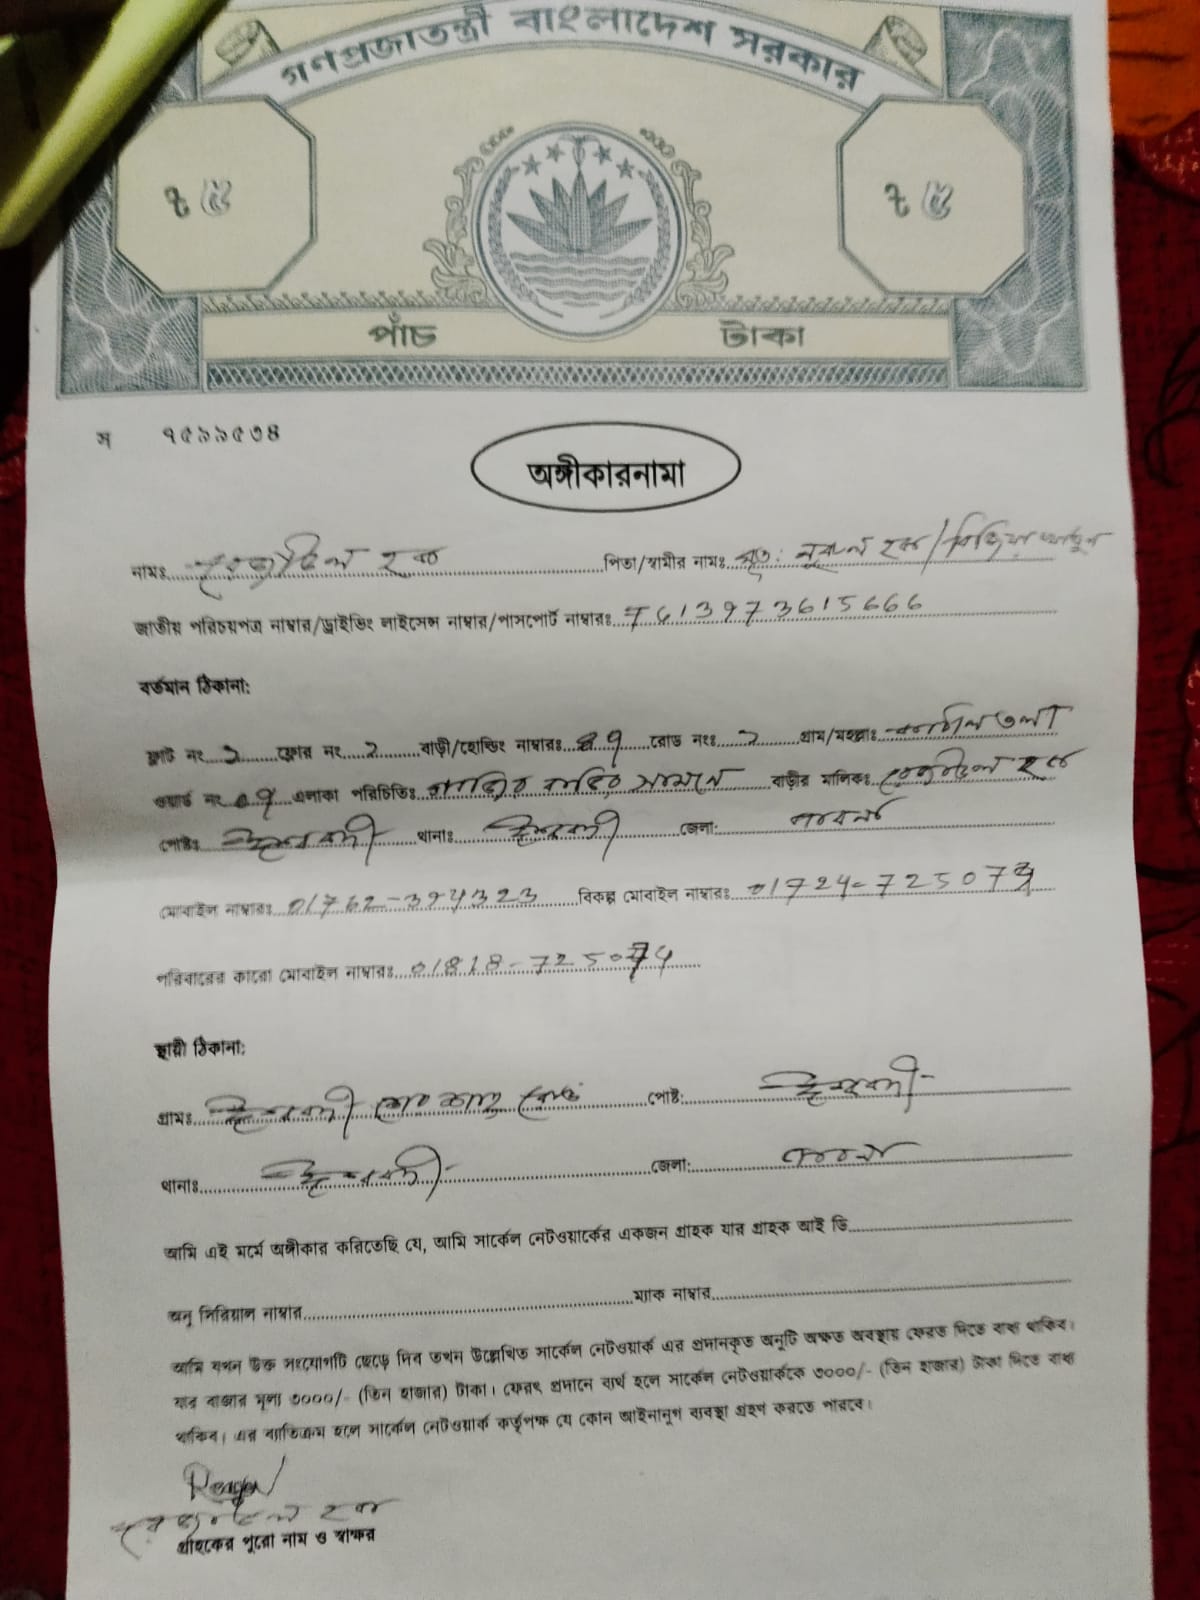 গণপ্রজাতন্ত্রী বাংলাদেশ সরকার
৳ ৫ ৳ ৫
পাঁচ টাকা
স ৭৫৯৯৫৩৪
অঙ্গীকারনামা
নামঃ হক পিতা/স্বামীর নামঃ মৃত: নূরুল হক/
জাতীয় পরিচয়পত্র নাম্বার/ড্রাইভিং লাইসেন্স নাম্বার/পাসপোর্ট নাম্বারঃ 7613973615666
বর্তমান ঠিকানা:
ফ্লাট নং ২ ফ্লোর নং ২ বাড়ী/হোল্ডিং নাম্বারঃ রোড নংঃ ২ গ্রাম/মহল্লাঃ
ওয়ার্ড নং এলাকা পরিচিতিঃ সামনে বাড়ীর মালিকঃ হক
পোষ্টঃ ঈশ্বরদী থানাঃ ঈশ্বরদী জেলা: পাবনা
মোবাইল নাম্বারঃ 01762-394323 বিকল্প মোবাইল নাম্বারঃ
পরিবারের কারো মোবাইল নাম্বারঃ
স্থায়ী ঠিকানা:
গ্রামঃ ঈশ্বরদী রোড পোষ্ট: ঈশ্বরদী
থানাঃ ঈশ্বরদী জেলা: পাবনা
আমি এই মর্মে অঙ্গীকার করিতেছি যে, আমি সার্কেল নেটওয়ার্কের একজন গ্রাহক যার গ্রাহক আই ডি
অনু সিরিয়াল নাম্বার ম্যাক নাম্বার
আমি যখন উক্ত সংযোগটি ছেড়ে দিব তখন উল্লেখিত সার্কেল নেটওয়ার্ক এর প্রদানকৃত অনুটি অক্ষত অবস্থায় ফেরত দিতে বাধ্য থাকিব।
যার বাজার মূল্য ৩০০০/- (তিন হাজার) টাকা। ফেরৎ প্রদানে ব্যর্থ হলে সার্কেল নেটওয়ার্ককে ৩০০০/- (তিন হাজার) টাকা দিতে বাধ্য
থাকিব। এর ব্যতিক্রম হলে সার্কেল নেটওয়ার্ক কর্তৃপক্ষ যে কোন আইনানুগ ব্যবস্থা গ্রহণ করতে পারবে।
হক
গ্রাহকের পুরো নাম ও স্বাক্ষর